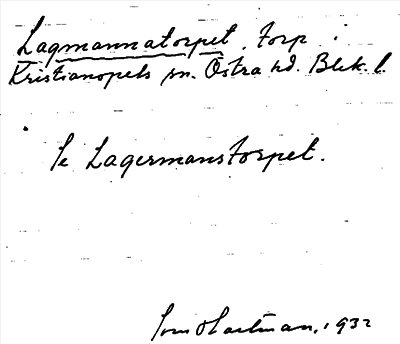 Lagmannatorpet, torp i
Kristianopels sn. Östra hd. Blek. l.
Se Lagermanstorpet.
1932